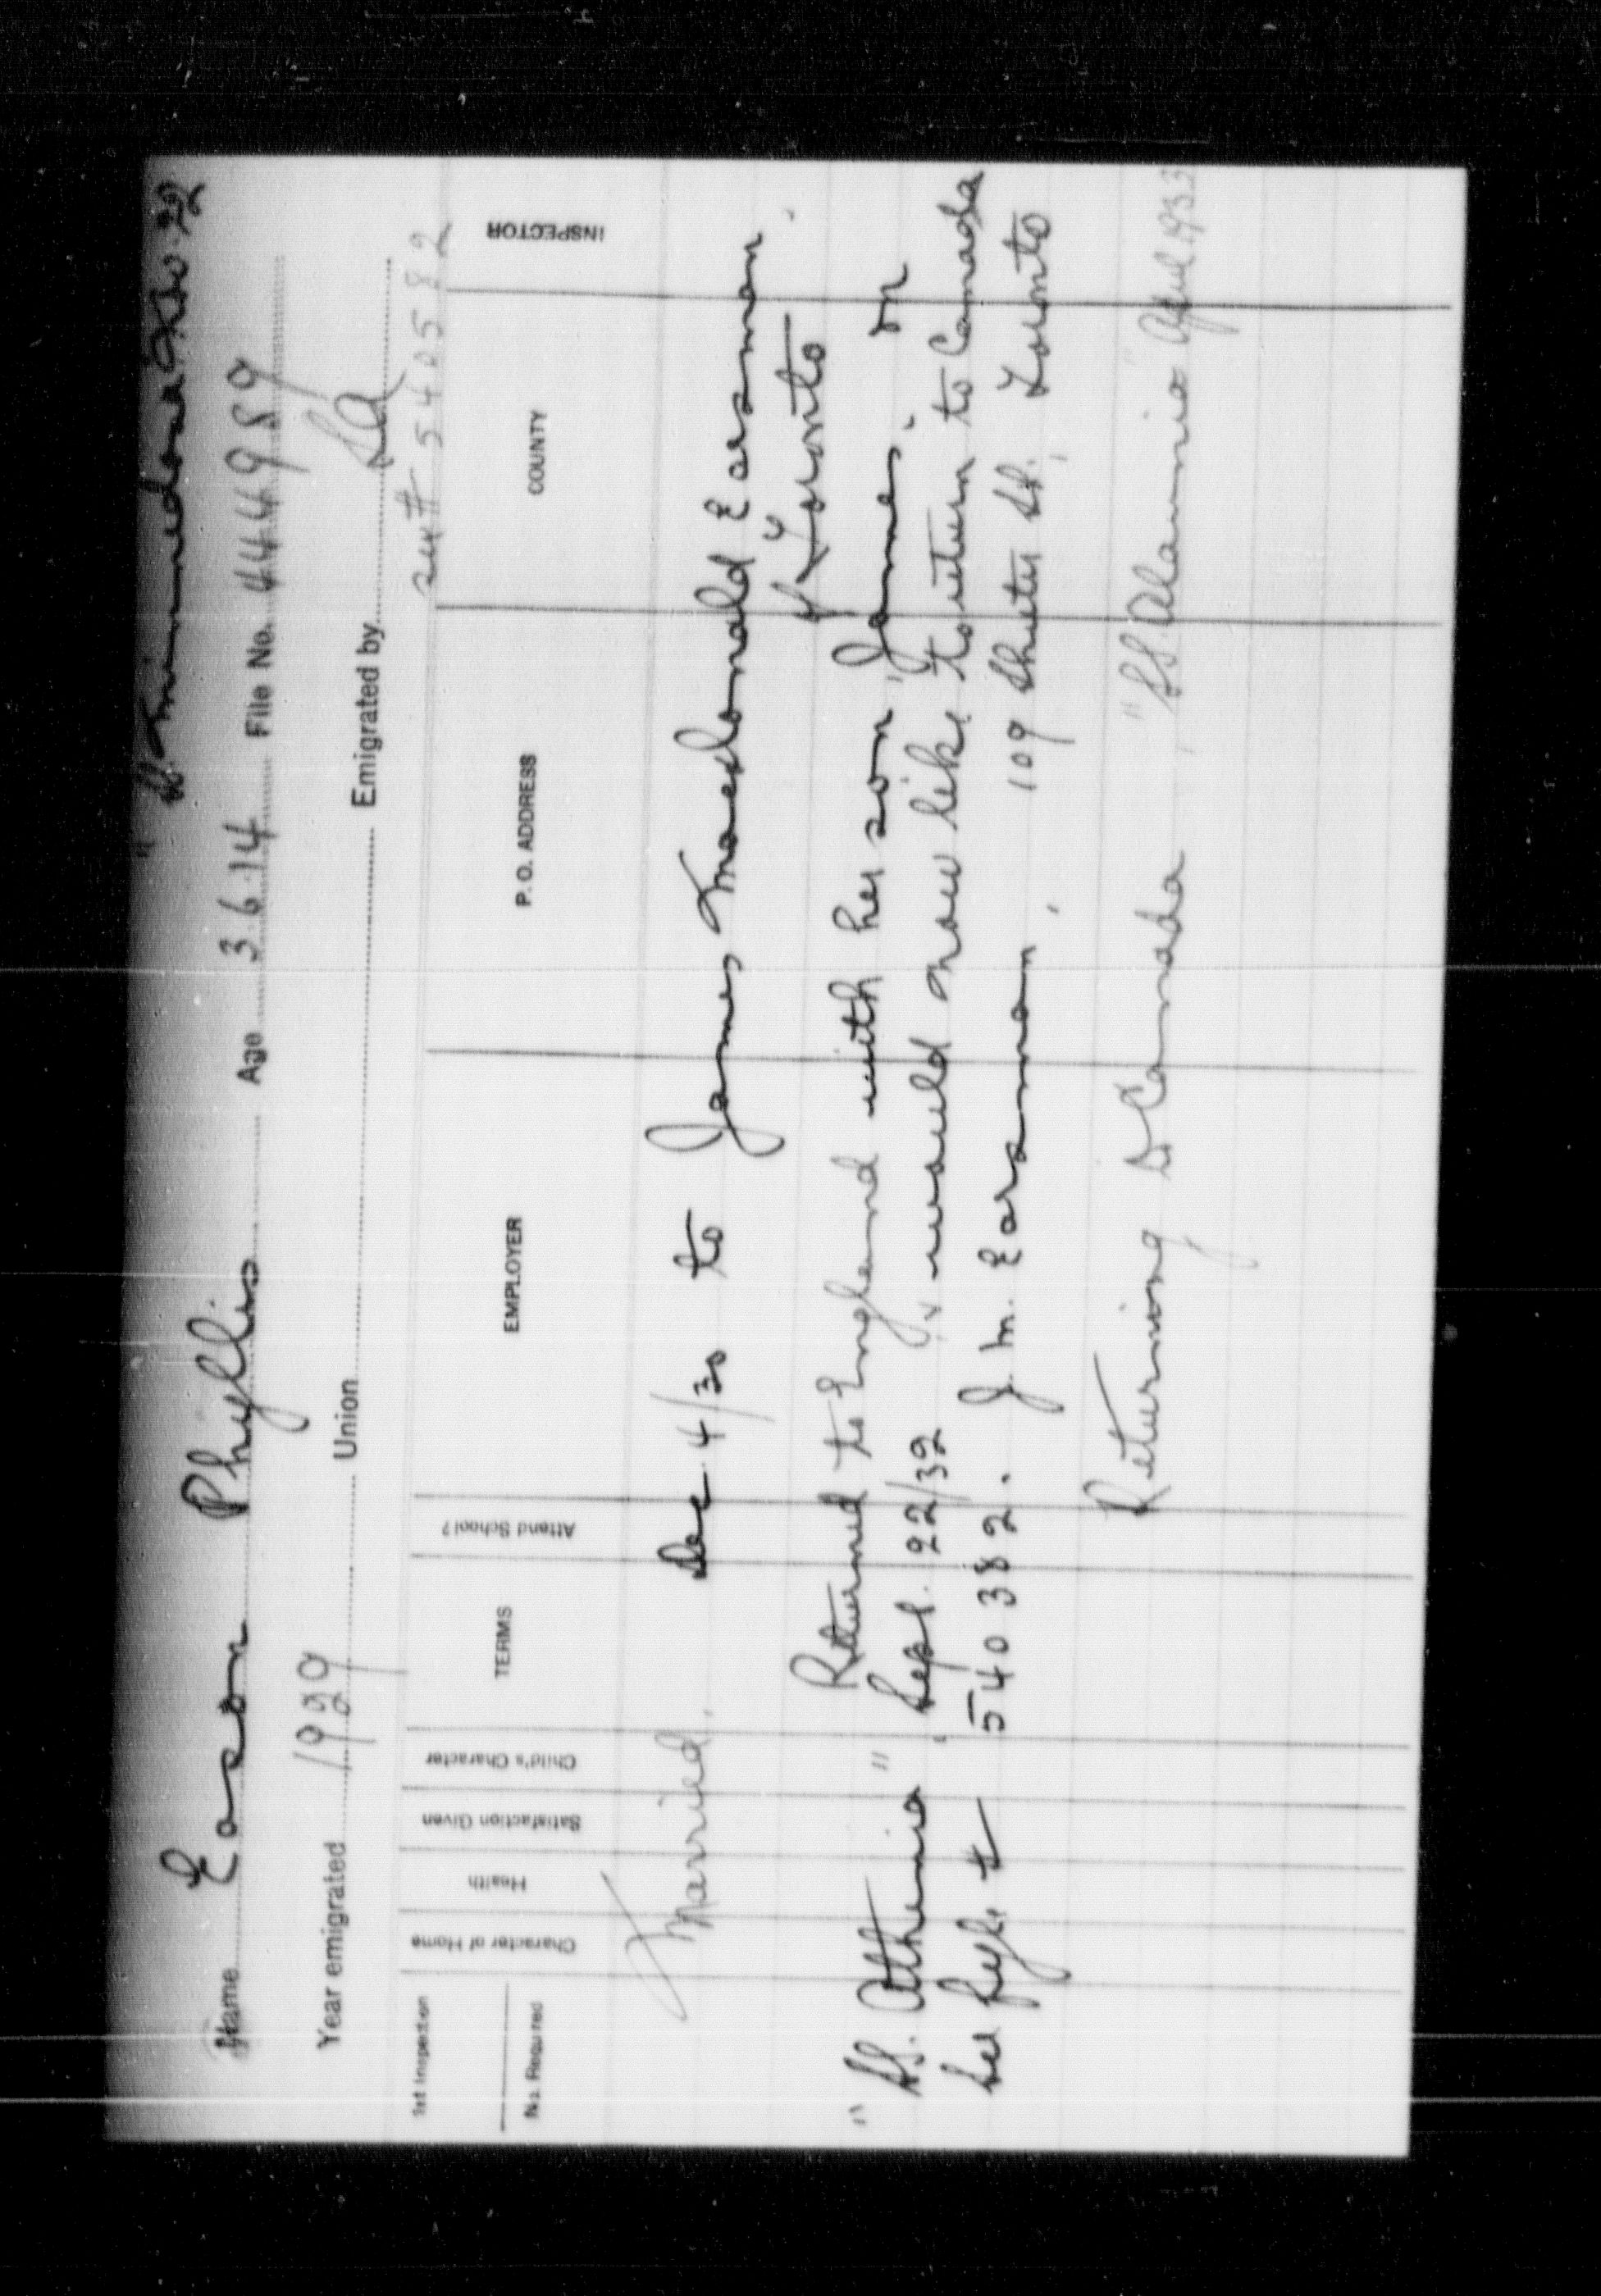 " SS. Minnedosa Nov. 22
Name Eason Phyllis Age 3.6.14 File No. 444989
Year emigrated 1929 Union Emigrated by SA
See # 5405382
1st Inspection
No. Required
Character of Home
Health
Satisfaction Given
Child's Character
TERMS
Attend School?
EMPLOYER
P. O. ADDRESS
COUNTY
INSPECTOR
Married. Dec 4/30 to James Macdonald Earsman.
of Toronto
Returned to England with her son, James, on
" SS. Athenia " Sept. 22/32 would now like to return to Canada
See fyle # 540382. J. M. Earsman, 109 Shuter St. Toronto
Returning to Canada, "SS. Alaunia" April 1933